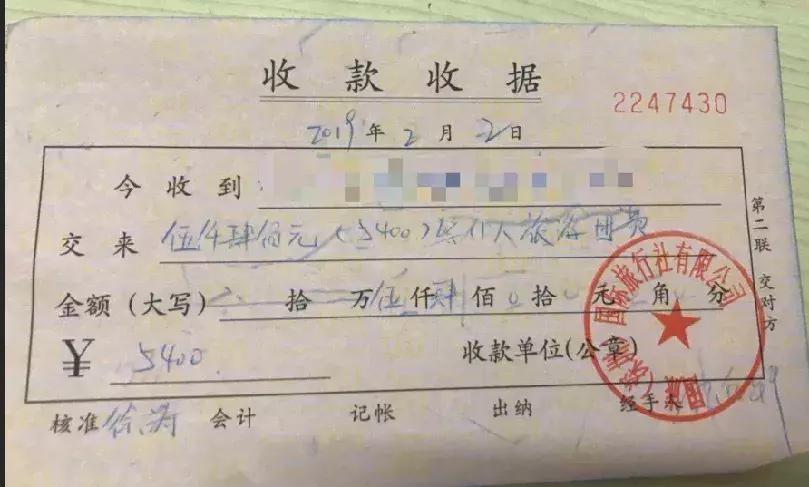 收款收据
2247430
2019年2月2日
今收到
交来 伍仟肆佰元(5400)共11人旅游团费
金额(大写) 拾万伍仟肆佰0拾0元 角 分
¥ 5400 收款单位(公章)
核准 徐涛 会计 记帐 出纳 经手人
第二联 交对方
国际旅行社有限公司